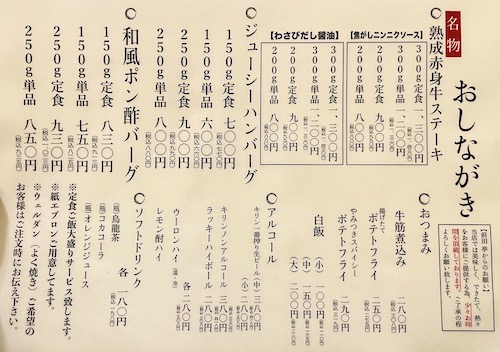 名物
おしながき
【前田 亭からのお願い】
当店では美味しく、できたて、熱々
をお客様にご提供する為、少々お時
間を頂戴しております。ご了承の程
よろしくお願い致します。
○熟成赤身牛ステーキ
【焦がしニンニクソース】
300g定食 一、三〇〇円
300g単品 一、二〇〇円
200g定食 九〇〇円
200g単品 八〇〇円
【わさびだし醤油】
300g定食 一、三〇〇円
300g単品 一、二〇〇円
200g定食 九〇〇円
200g単品 八〇〇円
○ジューシーハンバーグ
150g定食 七〇〇円
(税込七七〇円)
150g単品 六〇〇円
250g定食 九〇〇円
250g単品 八〇〇円
○和風ポン酢バーグ
150g定食 八三〇円
150g単品 七五〇円
250g定食 九三〇円
250g単品 八五〇円
○おつまみ
牛筋煮込み 二八〇円
揚げたて
ポテトフライ 二五〇円
やみつきスパイシー
ポテトフライ 二九〇円
白飯
(小) 一〇〇円
(中) 一五〇円
(大) 二〇〇円
○アルコール
キリン一番搾り生ビール(中) 三八〇円
(小) 二八〇円
キリンノンアルコール 三八〇円
ラッキーハイボール 二八〇円
ウーロンハイ(温・冷)
レモン酎ハイ
各 二八〇円
○ソフトドリンク
(瓶)烏龍茶
(瓶)コカコーラ
(瓶)オレンジジュース
各 一八〇円
※定食ご飯大盛りサービス致します。
※紙エプロンご用意してます。
※ウェルダン(よく焼き)ご希望の
お客様はご注文時にお伝え下さい。